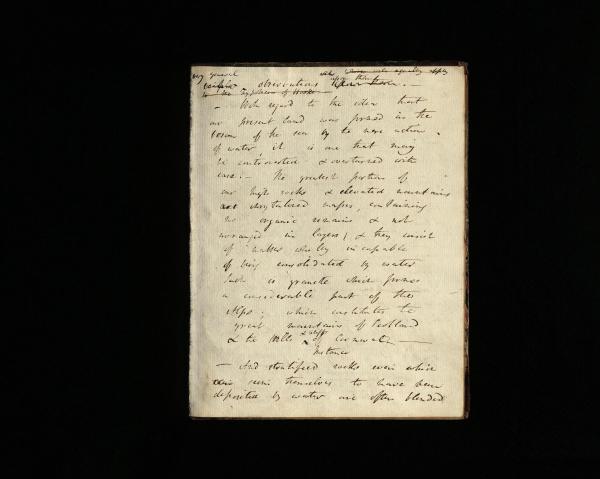 my general
observations upon them. —
— With regard to the idea that
our present land was formed in the
bosom of the sea by the mere action
of water, it is one that may
be controverted & overturned with
ease: — The greatest portion of
our high rocks & elevated mountains
are chrystalized masses, containing
no organic remains & not
arranged in layers; & they consist
of matter wholly incapable
of being consolidated by water
Such is granite which forms
a considerable part of the
Alps; which constitutes the
great mountains of Scotland
& the Hills & cliffs of Cornwall —
Instance
— And stratified rocks even which
seem themselves to have been
deposited by water are often blended